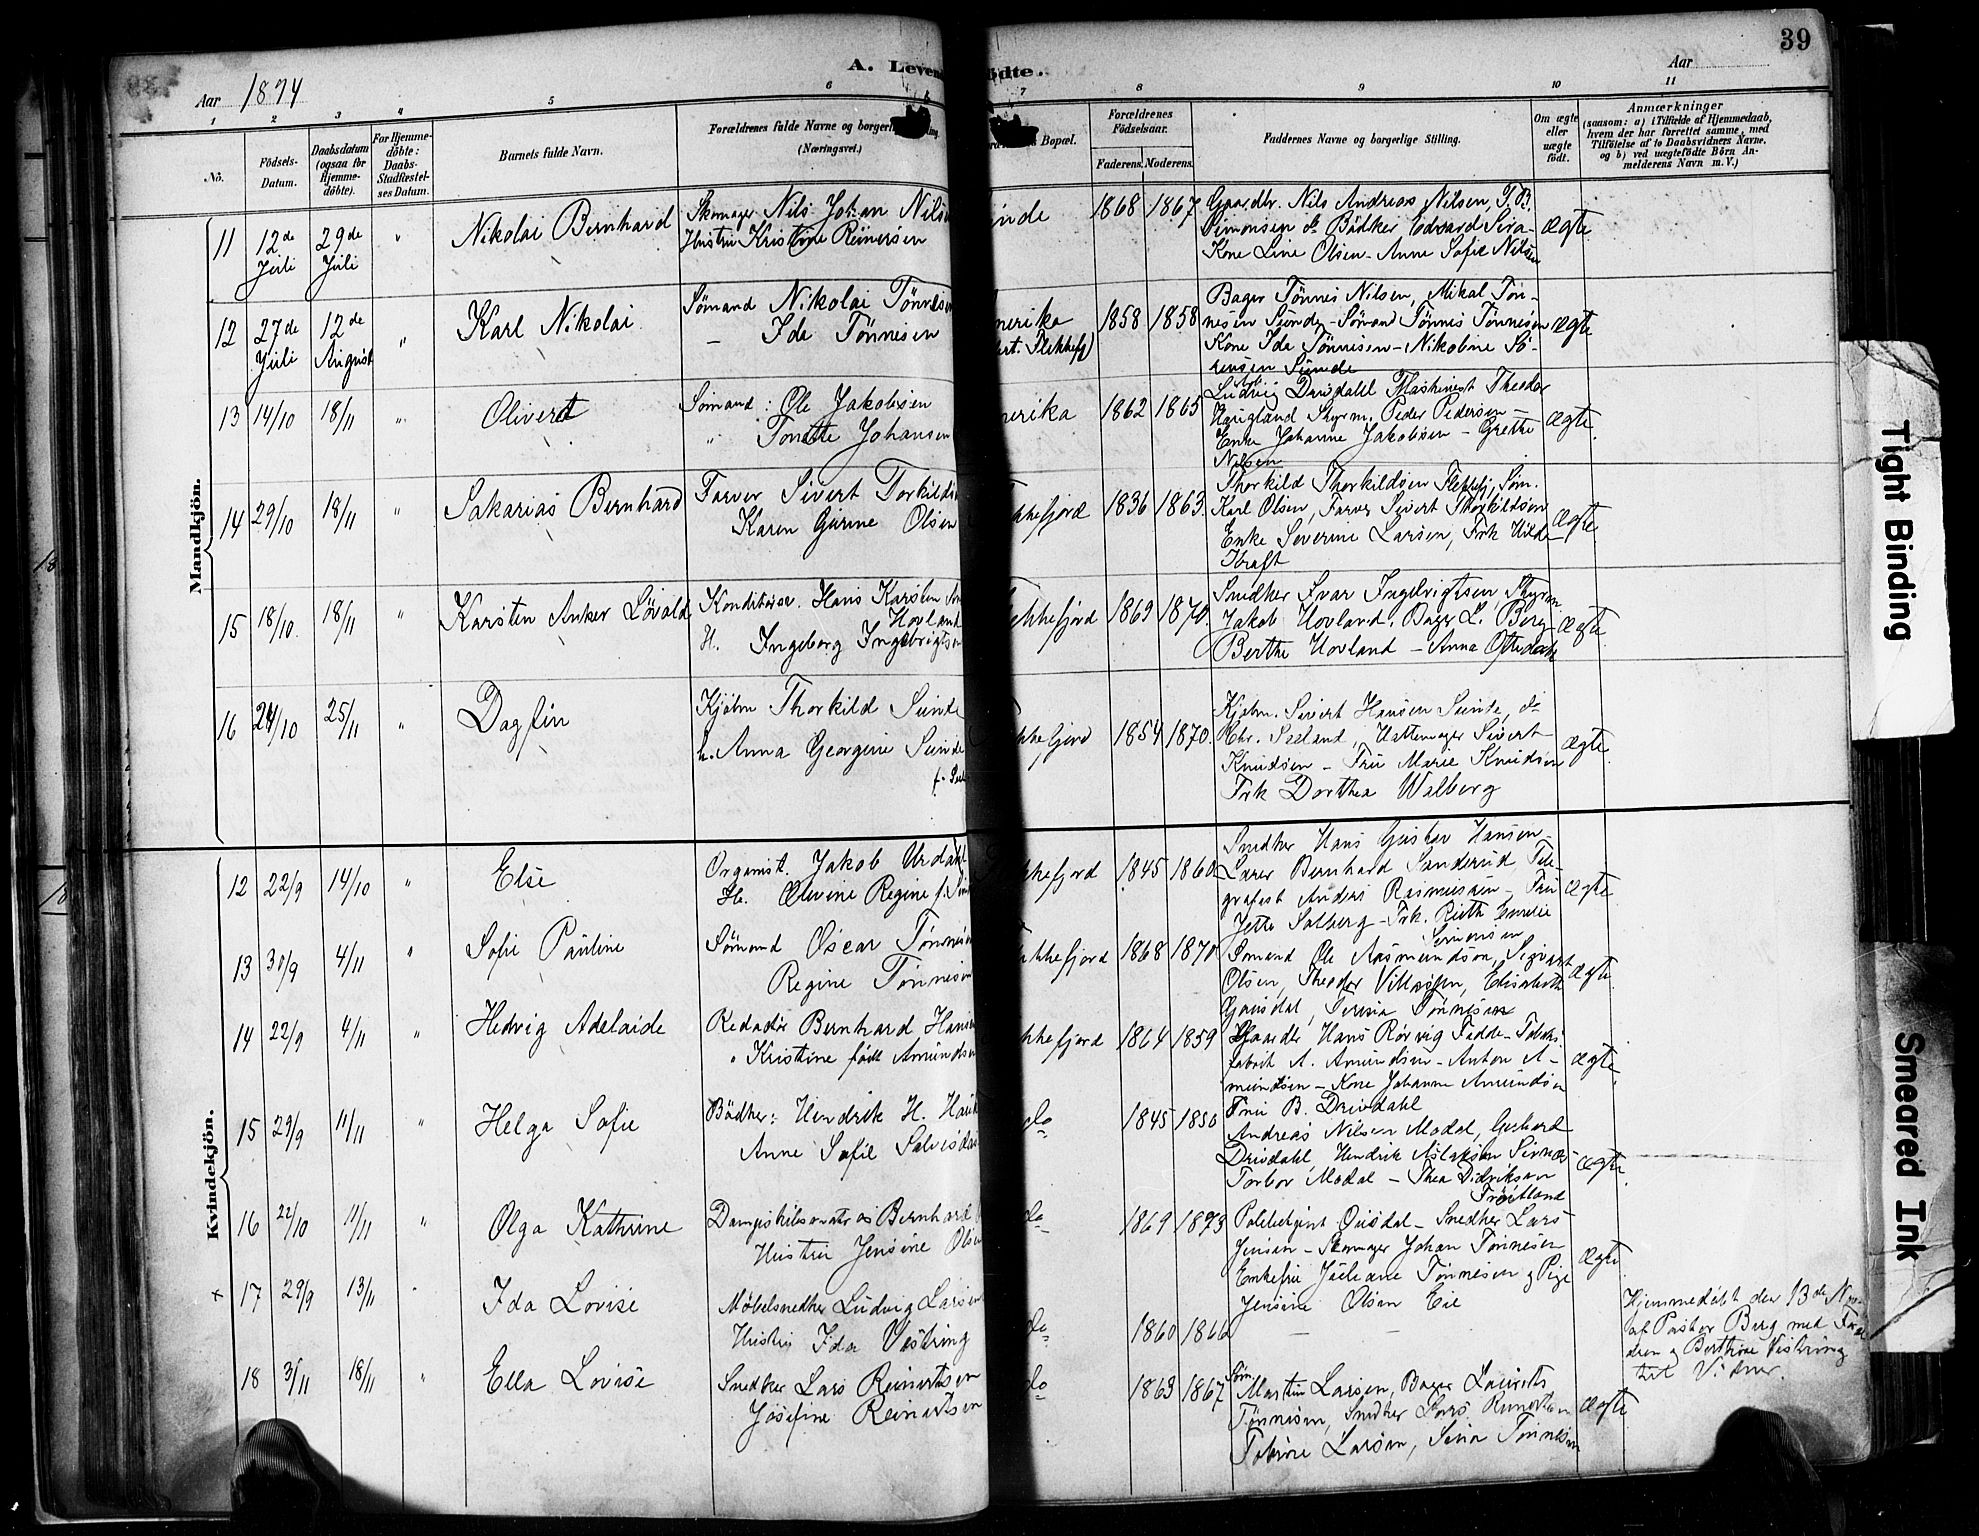 39
A. Leven
ødte.
Aar 1894
Aar
1 2 3 4 5 6 7 8 9 10 11
No.
Fødsels-Datum.
Daabsdatum (ogsaa for Hjemme-døbte).
For Hjemme-døbte: Daabs-Stadfæstel-ses Datum.
Barnets fulde Navn.
Forældrenes fulde Navne og borgerli
(Næringsvei.)
Bopæl.
Forældrenes Fødselsaar.
Faderens. Moderens.
Faddernes Navne og borgerlige Stilling.
Om ægte eller uægte født.
Anmærkninger
(saasom: a) i Tilfælde af Hjemmedaab,
hvem der har forrettet samme, med
Tilføielse af to Daabsvidners Navne,
og b) ved uægtefødte Børn An-
melderens Navn m. V.)
Mandkjön.
11 12de Juli 29de Juli " Nikolai Bernhard
Skomager Nils Johan Nils
Hustru Kristine Reinersen
inde 1868 1867
Gaardbr. Nils Andreas Nilsen, T. B.
Simonsen do Bödker Edvard Sira-
Kone Line Olsen - Anne Sofie Nilsen
Ægte
12 27de Juli 12de August " Karl Nikolai
Sømand Nikolai Tønnesen
— Ida Tønnesen
merika 1858 1858
Bager Tönnes Nilsen, Mikal Tön-
nesen Sunde - Sømand Tönnes Tønnesen
Kone Ida Tønnesen - Nikoline Sö-
rensen Sunde
Ægte
13 14/10 18/11 " Olivert
Sømand: Ole Jakobsen
" Tonette Johansen
merika 1862 1865
Ludvig Drivdahl Maskinist Theodor
Haugland Styrm. Peder Pedersen -
Enke Johanne Jakobsen - Grethe
Nilsen
Ægte.
14 29/10 18/11 " Sakarias Bernhard
Farver Sivert Torkilds
Karen Gurine Olsen
kkefjord 1836 1863.
Thorkild Thorkildsen Flekkefj, Søm.
Karl Olsen, Farver Sivert Thorkildsen
Enke Severine Larsen, Frk Hilda
Kraft
Ægte
15 18/10. 18/11 " Karsten Anker Lövald
Konditorsv. Hans Karsten
Hovland
H. Ingeborg Ingebrigtsen
ekkefjord 1869 1870.
Snedker Ivar Ingebrigtsen, Styrm.
Jakob Hovland. Bager L. Berg -
Berthe Hovland - Anna Oftedahl
Ægte.
16 24/10 25/11 " Dagfin
Kjøbm Thorkild Sunde
h. Anna Georgine Sunde
kkefjord 1854 1870.
Kjøbm. Sivert Hansen Sunde, do
Chr. Sæland, Hattemager Sivert
Knudsen - Fru Marie Knudsen
Frk Dorthea Walberg
Ægte.
Kvindekjön.
12 22/9 14/10 " Else
Organist. Jakob Urdahl
H. Olivine Regine f.
kkefjord 1845 1860
Snedker Hans Gustav Hansen -
Lærer Bernhard Sanderud, Tele-
grafist Anders Rasmussen - Fru
Jette Salberg - Frk. Ruth Emelie
Simonsen
Ægte
13 30/9 4/11 " Sofie Pauline
Sømand Oscar Tønnesen
Regine Tønnesen
kkefjord 1868 1870
Sømand Ole Aasmundson, Sigvart
Olsen, Theodor Villassen, Elisabeth
Gausdal, Teresia Tønnesen
Ægte
14 22/9 4/11 " Hedvig Adelaide
Redactör Bernhard Hansen
" Kristine født Amundsen
kkefjord 1864 1859
Gaardbr Hans Rörvig Fedde - Tobaks
fabrik A. Amundsen - Anton A-
mundsen - Kone Johanne Amundsen
Fru B. Drivdahl
Ægte.
15 29/9 11/11 " Helga Sofie
Bödker: Hendrik H. Hau
Anne Sofie Salvesda
do 1845 1850
Andreas Nilsen Modal, Gerhard
Drivdahl, Hendrik Aslaksen Sirnæs
Torbor Modal - Thea Didriksen
Trøiland
Ægte.
16 22/10 11/11 " Olga Kathrine
Dampskibsmatros Bernhard
Hustru Jensine Olsen
do 1869 1873
Politibetjent Ousdal - Snedker Lars
Jensen - Skomager Johan Tønnesen
Enkefru Juliane Tønnesen og Pige
Jensine Olsen Eie
Ægte
x 17 29/9 13/11 " Ida Lovise
Møbelsnedker Ludvig Larsen
Hustru Ida Vestring
do 1860 1866
— — —
Hjemmedøbt den 13de Nov.
af Pastor Berg med Fade
ren og Berthine Vestring
til Vidner.
18 3/11 18/11 " Ella Lovise
Snedker Lars Reinertsen
Josefine Reinertsen
do 1863 1867
Søm. Martin Larsen, Bager Laurits
Tönnesen, Snedker Lars Reinertsen
Tobine Larsen, Sina Tønnesen
Ægte
Tight Binding
Smeared Ink